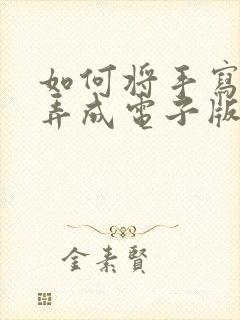 如何將手寫
弄成電子版
金素賢